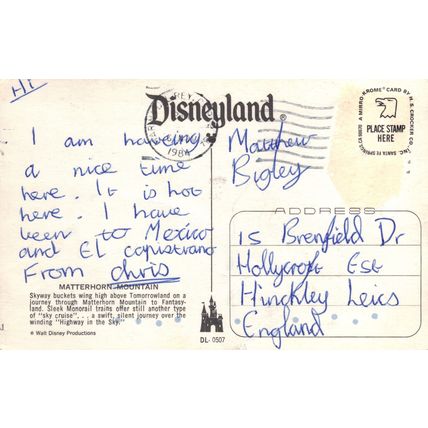 Hi
Disneyland®
I am having
a nice time
here. It is hot
here. I have
been to Mexico
and El capistrano
From chris
MATTERHORN MOUNTAIN
Skyway buckets wing high above Tomorrowland on a
journey through Matterhorn Mountain to Fantasy-
land. Sleek Monorail trains offer still another type
of "sky cruise". . . a swift, silent journey over the
winding "Highway in the Sky."
© Walt Disney Productions
1984
DL-0507
A MIRRO-KROME® CARD BY H. S. CROCKER CO., INC. SANTA FE SPRINGS, CA 90670
PLACE STAMP
HERE
Matthew
Bigley
ADDRESS
15 Brenfield Dr
Hollycroft Est
Hinckley Leics
England